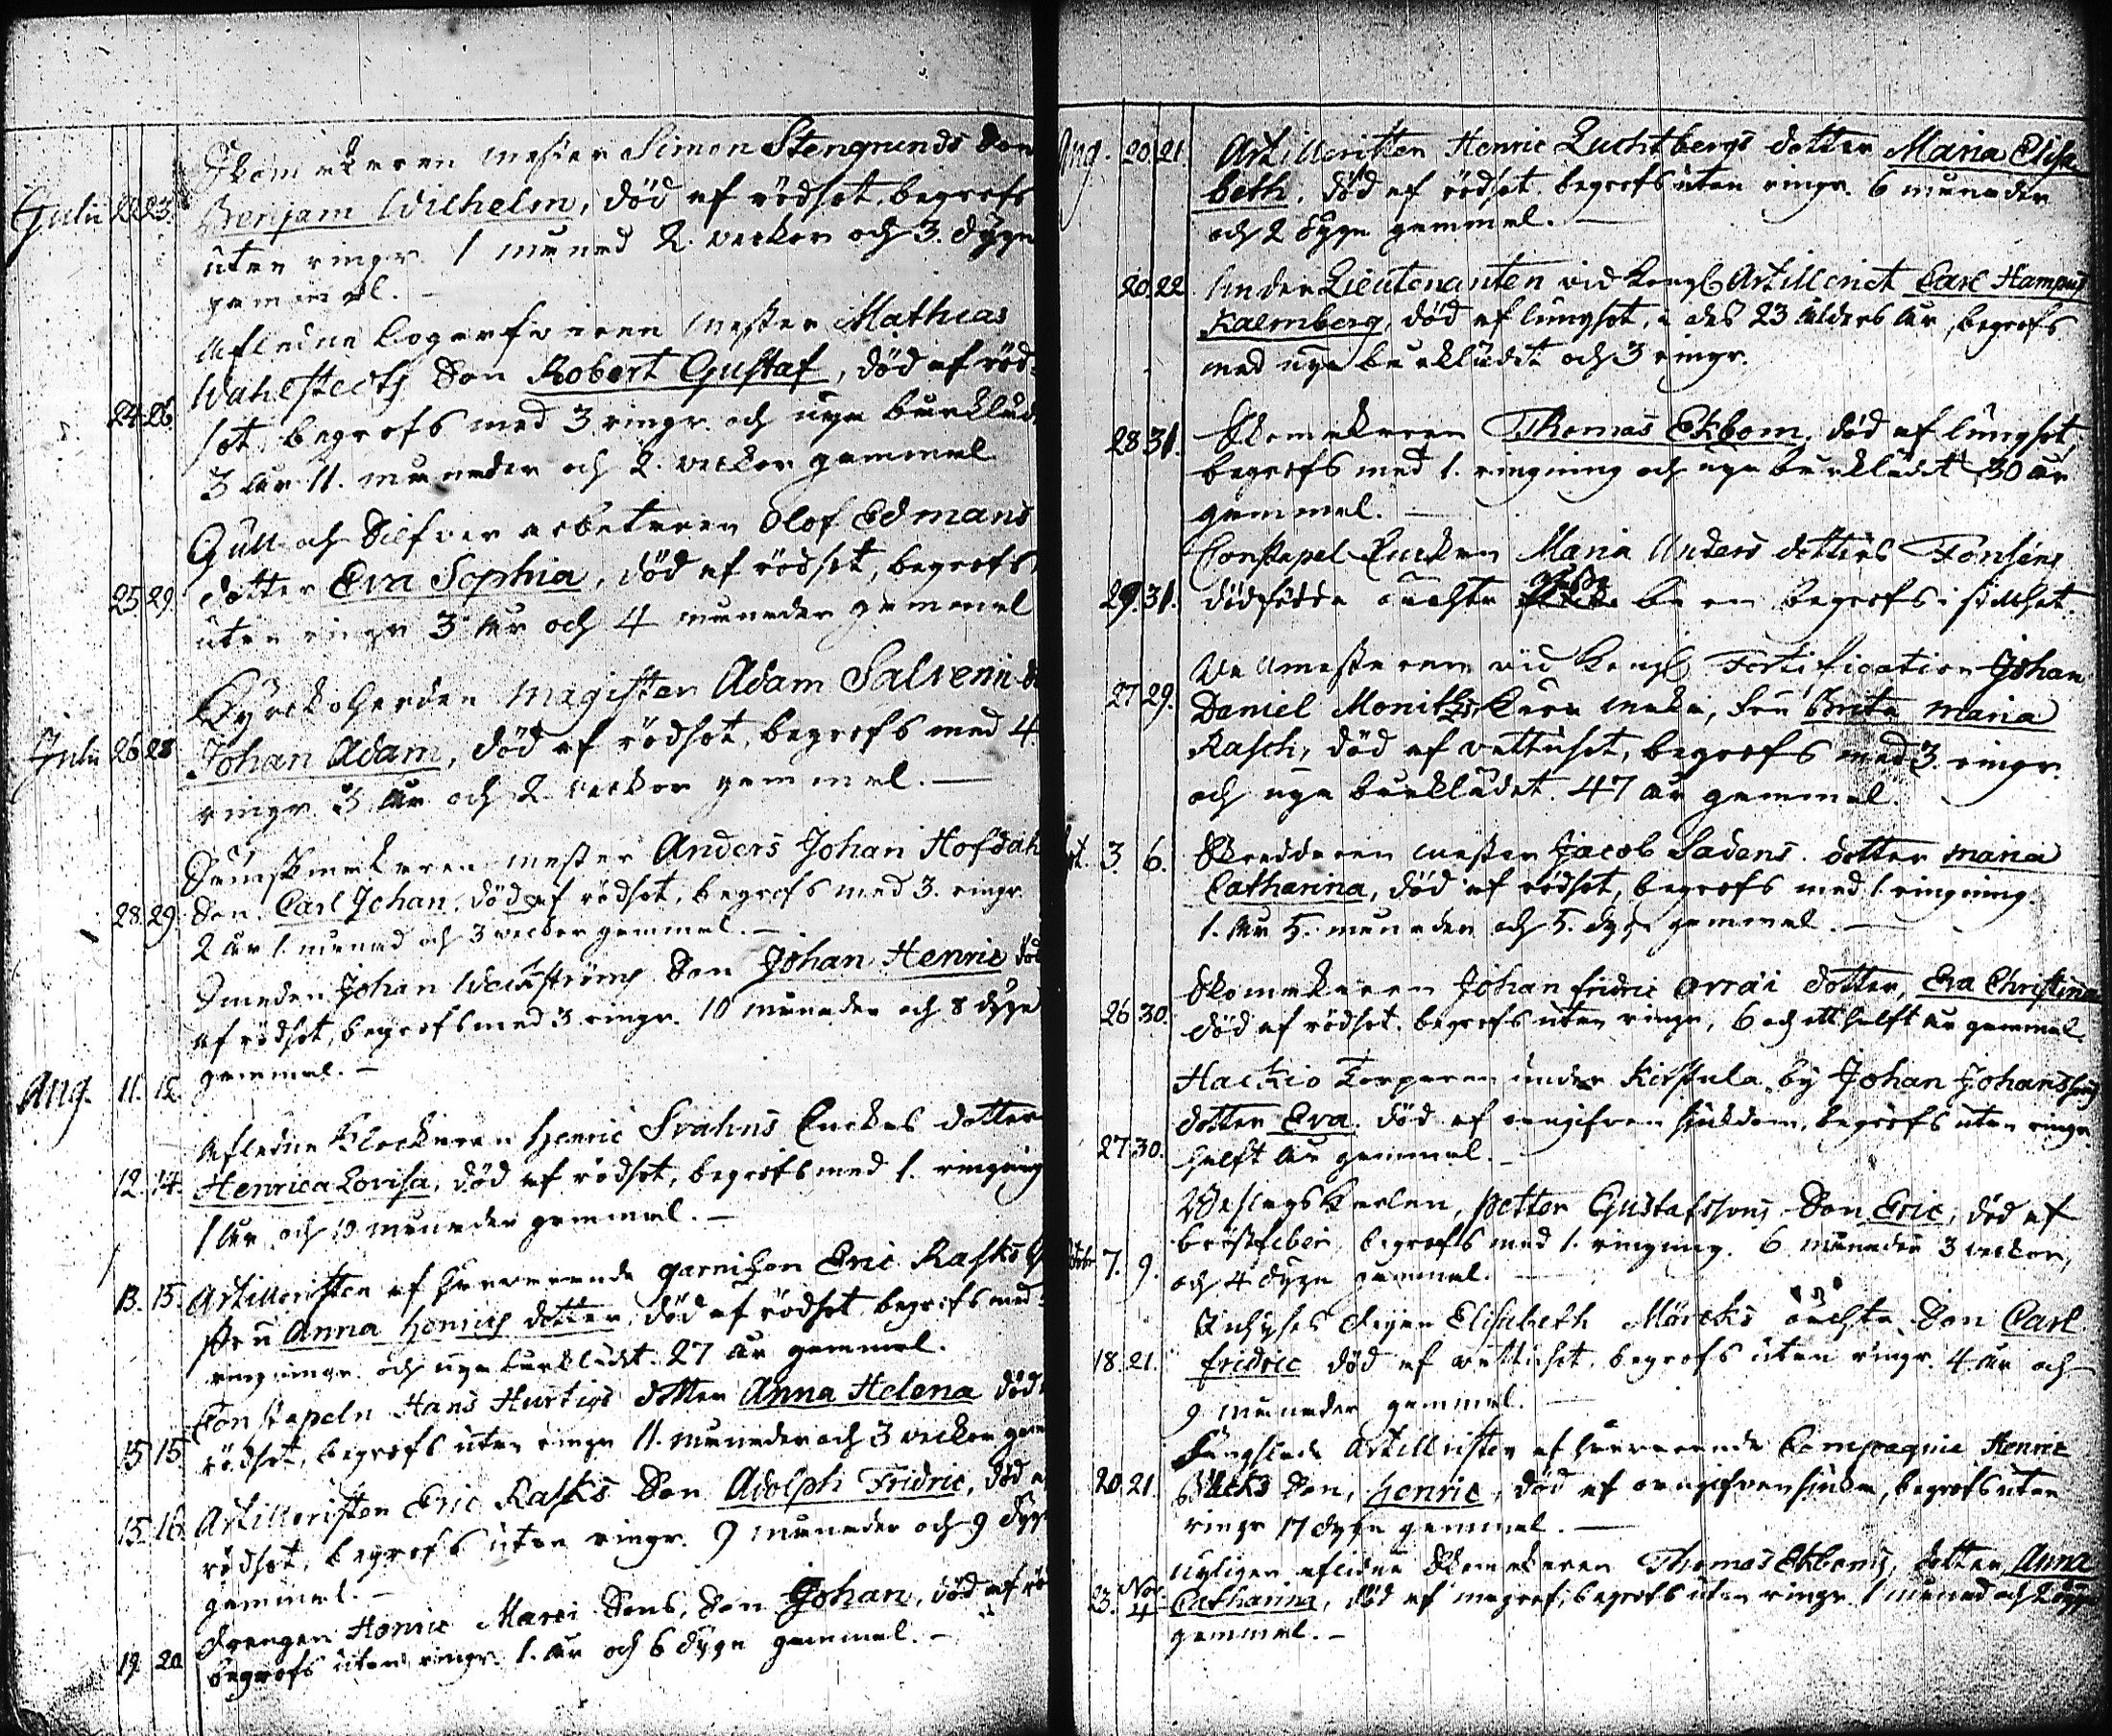 Skomakaren mester Simon Stengrunds Son
Julii 22 23. Benjam Wilhelm, död af rödsot, begrofs
utan ringn. 1 månad 2. veckor och 3. dygn
gammal.
Afledne Logarfvaren mester Mathias
Wahlstects Son Robert Gustaf, död af röd-
24 26. sot, begrofs med 3 ringn. och nya bårklädet
3 år 11. månader och 2. veckor gammal
Gull och Silfver arbetaren Olof Edmans
25 29. dotter Eva Sophia, död af rödsot, begrofs
utan ringn 3 år och 4 månader gammal
Kyrckoherden magister Adam Salvenii
Julii 26 28 Johan Adam, död af rödsot, begrofs med 4.
ringn. 3 år och 2 veckor gammal.
mester Anders Johan Hofdah
28. 29. Son Carl Johan, död af rödsot, begrofs med 3. ringn.
2 år 1. månad och 3 veckor gammal.
Smeden Johan Son Johan Henric död
af rödsot, begrofs med 3 ringn. 10 månader och 8 dygn
Aug. 11. 12. gammal.
Afledne Klockaren Henric Svahns Enckas dotter
12. 14. Henrica Lovisa, död af rödsot, begrofs med 1. ringning
1 år och 10 månader gammal.
13. 15. Artilleristen af härvarande garnizon Eric Rasks
stru Anna Henrics dotter, död af rödsot, begrofs med
ringningar och nya bårklädet. 27 år gammal.
Constapeln Hans Hurtigs dotter Anna Helena död
15 15. rödsot, begrofs utan ringn 11. månader och 3 veckor gam
Artilleristen Eric Rasks Son Adolph Fridric, död af
15. 16. rödsot, begrofs utan ringn. 9 månader och 9 dygn
gammal.
drengen Henric Marci Sons, Son Johan, död af rö
19. 20 begrofs utan ringn. 1. år och 6 dygn gammal.
Aug. 20. 21. Artilleristen Henric Luchtbergs dotter Maria Elisa
beth, död af rödsot, begrofs utan ringn. 6 månader
och 2 dygn gammal.
20. 22. Under Lieutenanten vid Kongl Artilleriet Carl Hampus
Kalmberg, död af lungsot, i des 23 ålders år, begrofs
med nya bårklädet och 3 ringn.
28 31. Skomakaren Thomas Ekbom, död af lungsot,
begrofs med 1. ringning och nya bårklädet 30 år
gammal.
Constapel Enckan Maria Anders dotters Fonséns
29. 31. dödfödde oächta barn begrofs i
Vallmestaren vid Kongl Fortification Johan
27 29. Daniel Monitzs Kära maka, fru Brita Maria
Rasch, död af vattusot, begrofs med 3. ringn.
och nya bårklädet. 47 år gammal.
3. 6. Skreddaren mester Jacob Sadens dotter Maria
Catharina, död af rödsot, begrofs med 1. ringning.
1. år 5. månader och 5. dygn gammal.
Skomakaren Johan Fridric Arrái dotter, Eva Christina
26 30. död af rödsot, begrofs utan ringn, 6 och ett halft år gammal.
Hackio Torparen under Kirstula by Johan Johanssons
dotter Eva, död af oangifven siukdom, begrofs utan ringn
27. 30. halft år gammal.
Petter Gustafssons Son Eric, död af
bröstfeber, begrofs med 1. ringning. 6 månader 3 veckor,
7. 9. och 4 dygn gammal.
pigan Elisabeth Mörcks oächta Son Carl
18. 21. Fridric död af vattusot, begrofs utan ringn. 4. år och
9 månader gammal.
Fängslade Artilleristen af härvarande Compagnie Henric
20. 21. Son, Henric, död af oangifven siukdom, begrofs utan
ringn 17 dygn gammal.
nyligen aflidne Skomakaren Thomas Ekboms, dotter Anna
23. Nov. 4 Catharina, död af, begrofs utan ringn. 1 månad och 2 dygn
gammal.